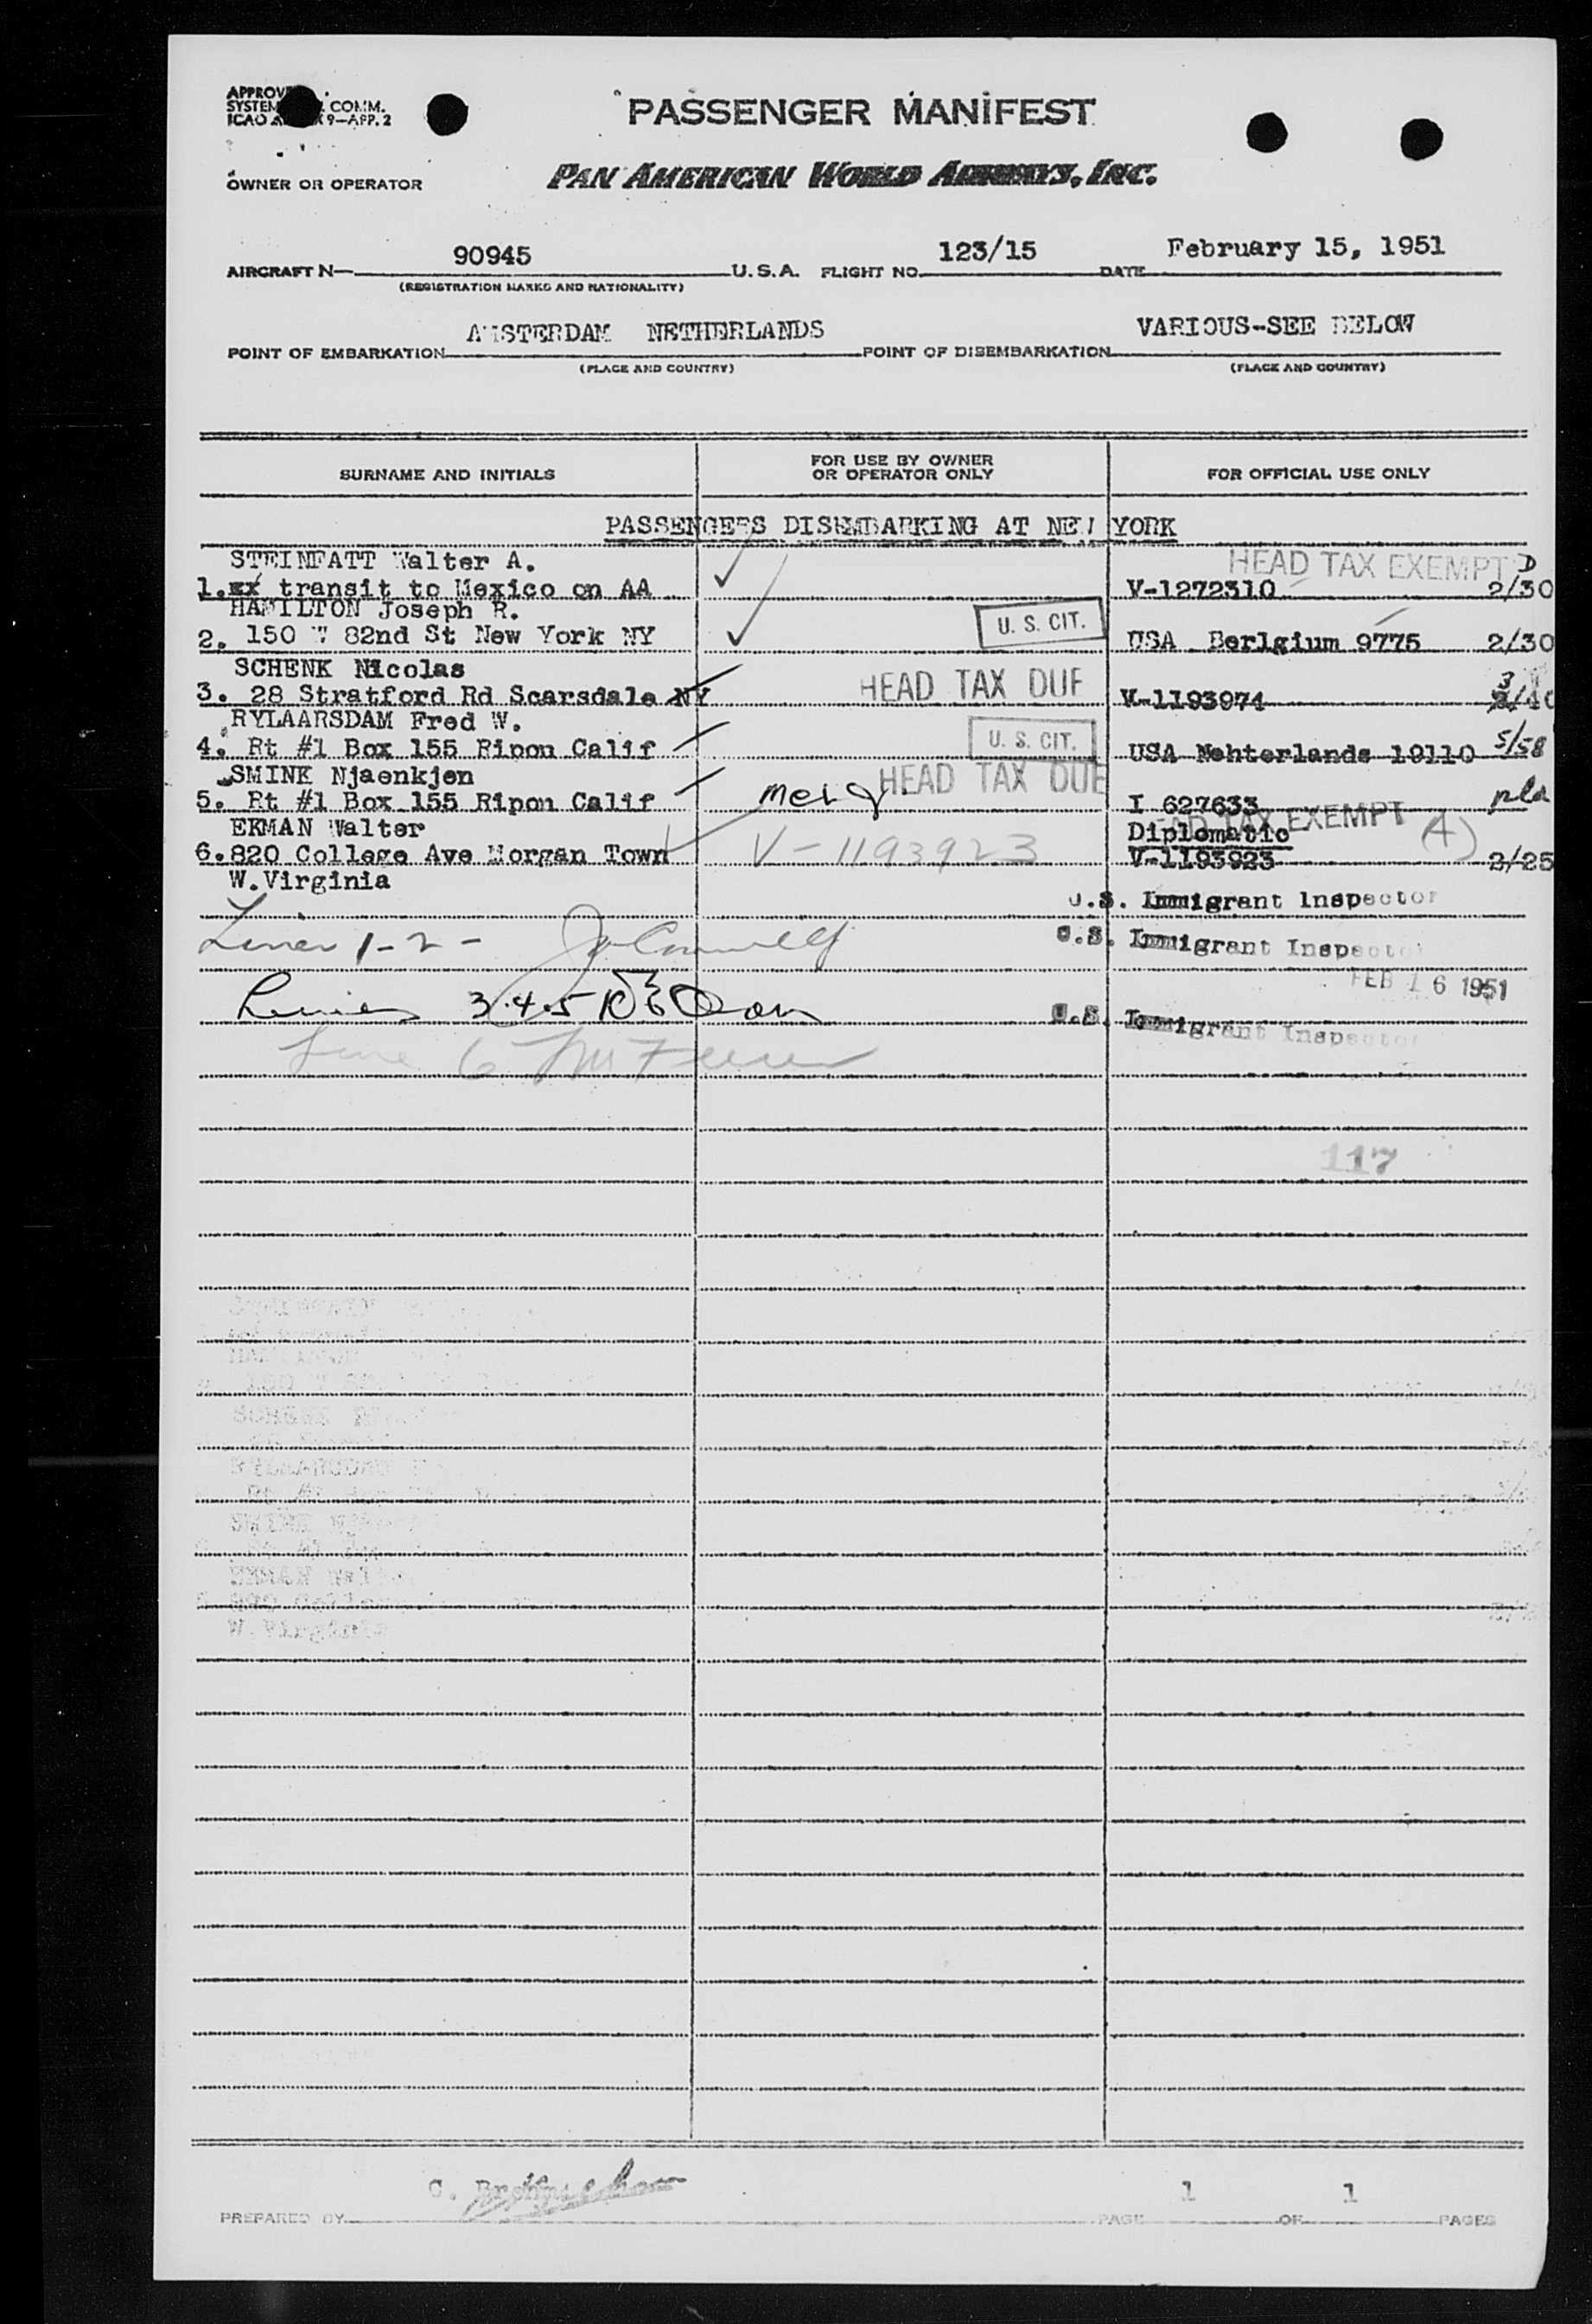 PASSENGER MANIFEST
COMM.
ICAO 9—APP. 2
OWNER OR OPERATOR PAN AMERICAN WORLD AIRWAYS, INC.
AIRCRAFT N— 90945 U.S.A. FLIGHT NO. 123/15 DATE February 15, 1951
(REGISTRATION MARKS AND NATIONALITY)
POINT OF EMBARKATION AMSTERDAM NETHERLANDS POINT OF DISEMBARKATION VARIOUS-SEE BELOW
(PLACE AND COUNTRY) (PLACE AND COUNTRY)
SURNAME AND INITIALS FOR USE BY OWNER OR OPERATOR ONLY FOR OFFICIAL USE ONLY
PASSENGERS DISEMBARKING AT NEW YORK
STEINFATT Walter A. HEAD TAX EXEMPT D
1. xx transit to Mexico on AA V-1272310 2/30
HAMILTON Joseph R.
2. 150 W 82nd St New York NY U. S. CIT. USA Berlgium 9775 2/30
SCHENK Nicolas
3. 28 Stratford Rd Scarsdale NY HEAD TAX DUE V-1193974
RYLAARSDAM Fred W.
4. Rt #1 Box 155 Ripon Calif U. S. CIT. USA Nehterlands 19110 5/58
SMINK Njaenkjen HEAD TAX DUE
5. Rt #1 Box 155 Ripon Calif I 627633
EKMAN Walter HEAD TAX EXEMPT
Diplomatic (4)
6. 820 College Ave Morgan Town V-1193923 V-1193923 2/25
W.Virginia
U.S. Immigrant Inspector
Lines 1-2- U.S. Immigrant Inspector
FEB 16 1951
Lines 3.4.5 U.S. Immigrant Inspector
Line 6
117
PREPARED BY C. PAGE 1 OF 1 PAGES